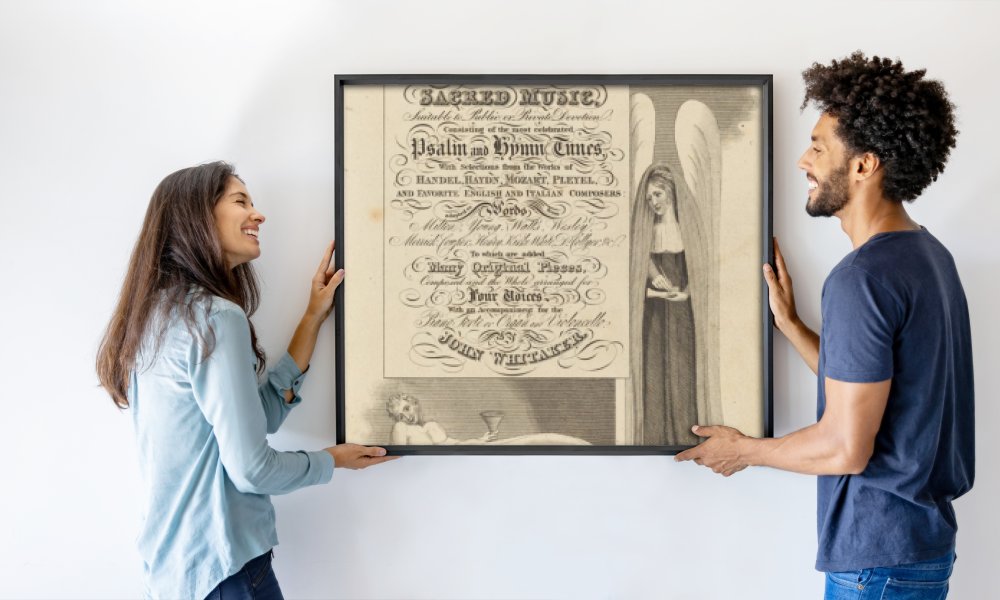 SACRED MUSIC,
Suitable to Public or Private Devotion.
Consisting of the most celebrated
Psalm and Hymn Tunes,
With Selections from the Works of
HANDEL, HAYDN, MOZART, PLEYEL,
AND FAVORITE ENGLISH AND ITALIAN COMPOSERS
Words,
Milton, Young, Watts, Wesley,
Merrick, Cowper, Henry Kirke White, Dr. Collyer &c.
To which are added
Many Original Pieces,
Composed and the Whole arranged for
Four Voices.
With an Accompaniment for the
Piano Forte or Organ and Violoncello.
BY
JOHN WHITAKER.